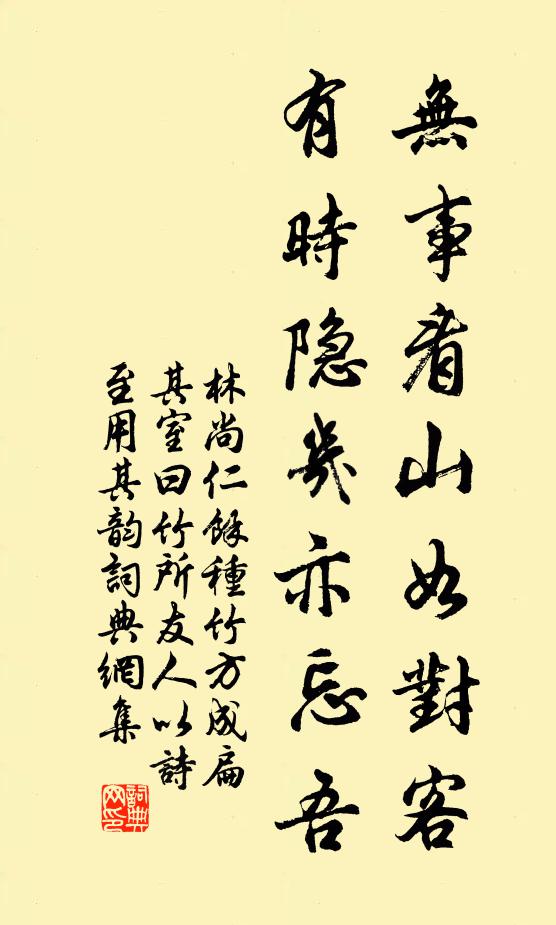 無事看山如對客
有時隱幾亦忘吾
林尚仁餘種竹方成扁
其室曰竹所友人以詩
至用其韵詞典網集
詞典網印